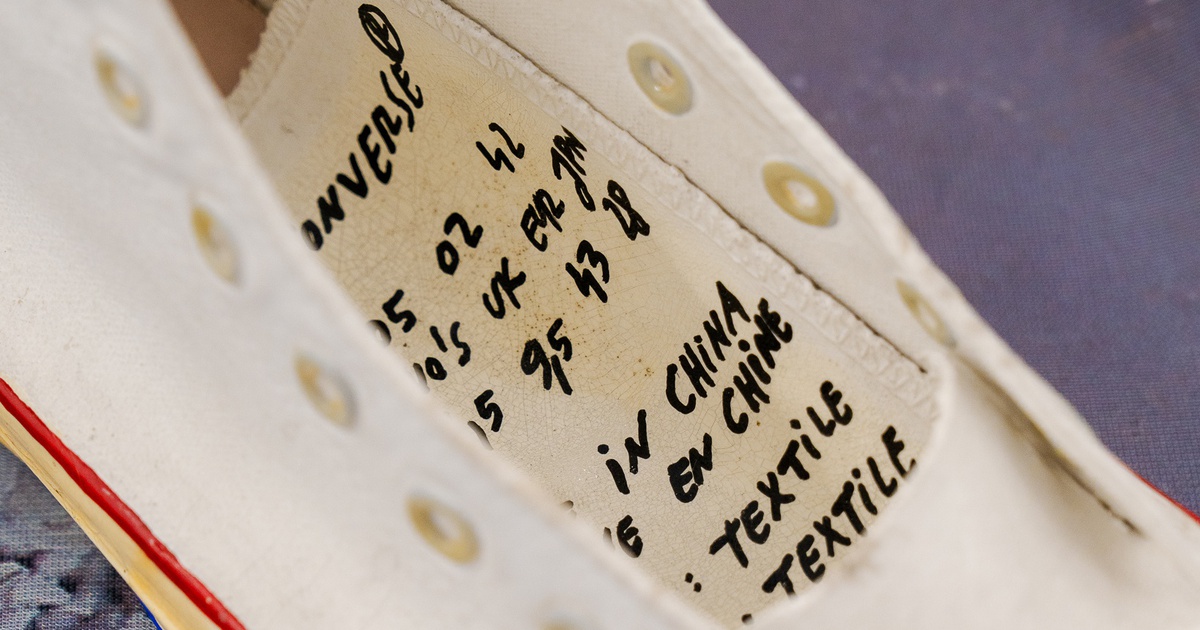 ONVERSE ®
05 02 42
10'S UK EUR JPN
5 9,5 43 28
iN CHiNA
E EN CHiNE
: TEXTiLE
: TEXTiLE